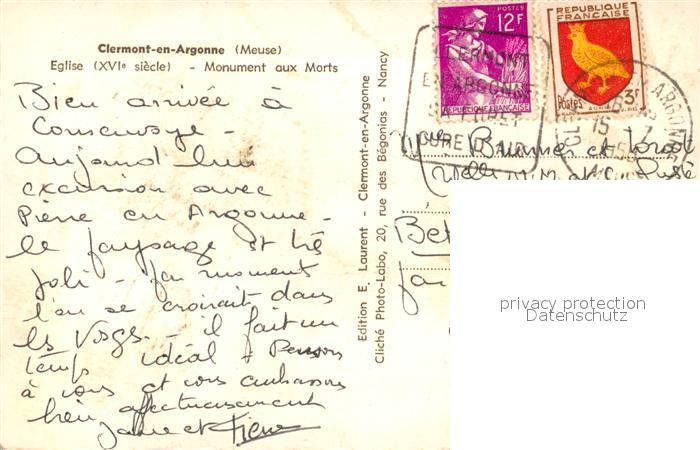 Clermont-en-Argonne (Meuse)
Eglise (XVIe siècle) - Monument aux Morts
Bien arrivée à
Consenvoye -
Aujourd'hui
excursion avec
Pierre en Argonne -
le paysage est très
joli - par moment
l'on se croirait dans
les Vosges - il fait un
temps idéal - Pensons
à vous et vous embrassons
bien affectueusement
Pierre
Edition E. Laurent - Clermont-en-Argonne
Cliché Photo-Labo, 20, rue des Bégonias - Nancy
POSTES
12F
REPUBLIQUE FRANÇAISE
REPUBLIQUE
FRANÇAISE
Postes
AUNIS
3F
CLERMONT
EN ARGONNE
CURE D'AIR
ARGONNE
15
et
Bet
privacy protection
Datenschutz